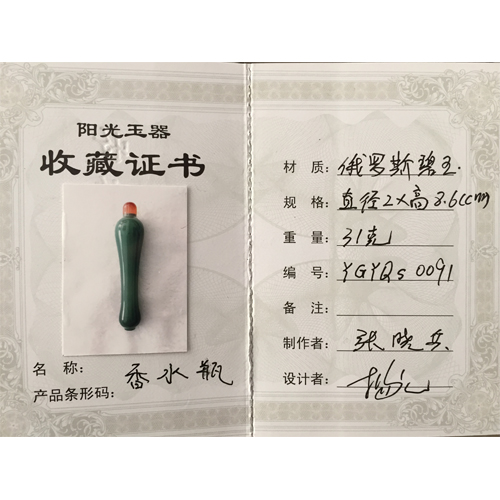 阳光玉器
收藏证书
名 称：香水瓶
产品条形码：
材 质：俄罗斯碧玉.
规 格：直径2×高8.6(cm)
重 量：31克
编 号：YGYQs 0091
备 注：
制作者：张晓兵
设计者：